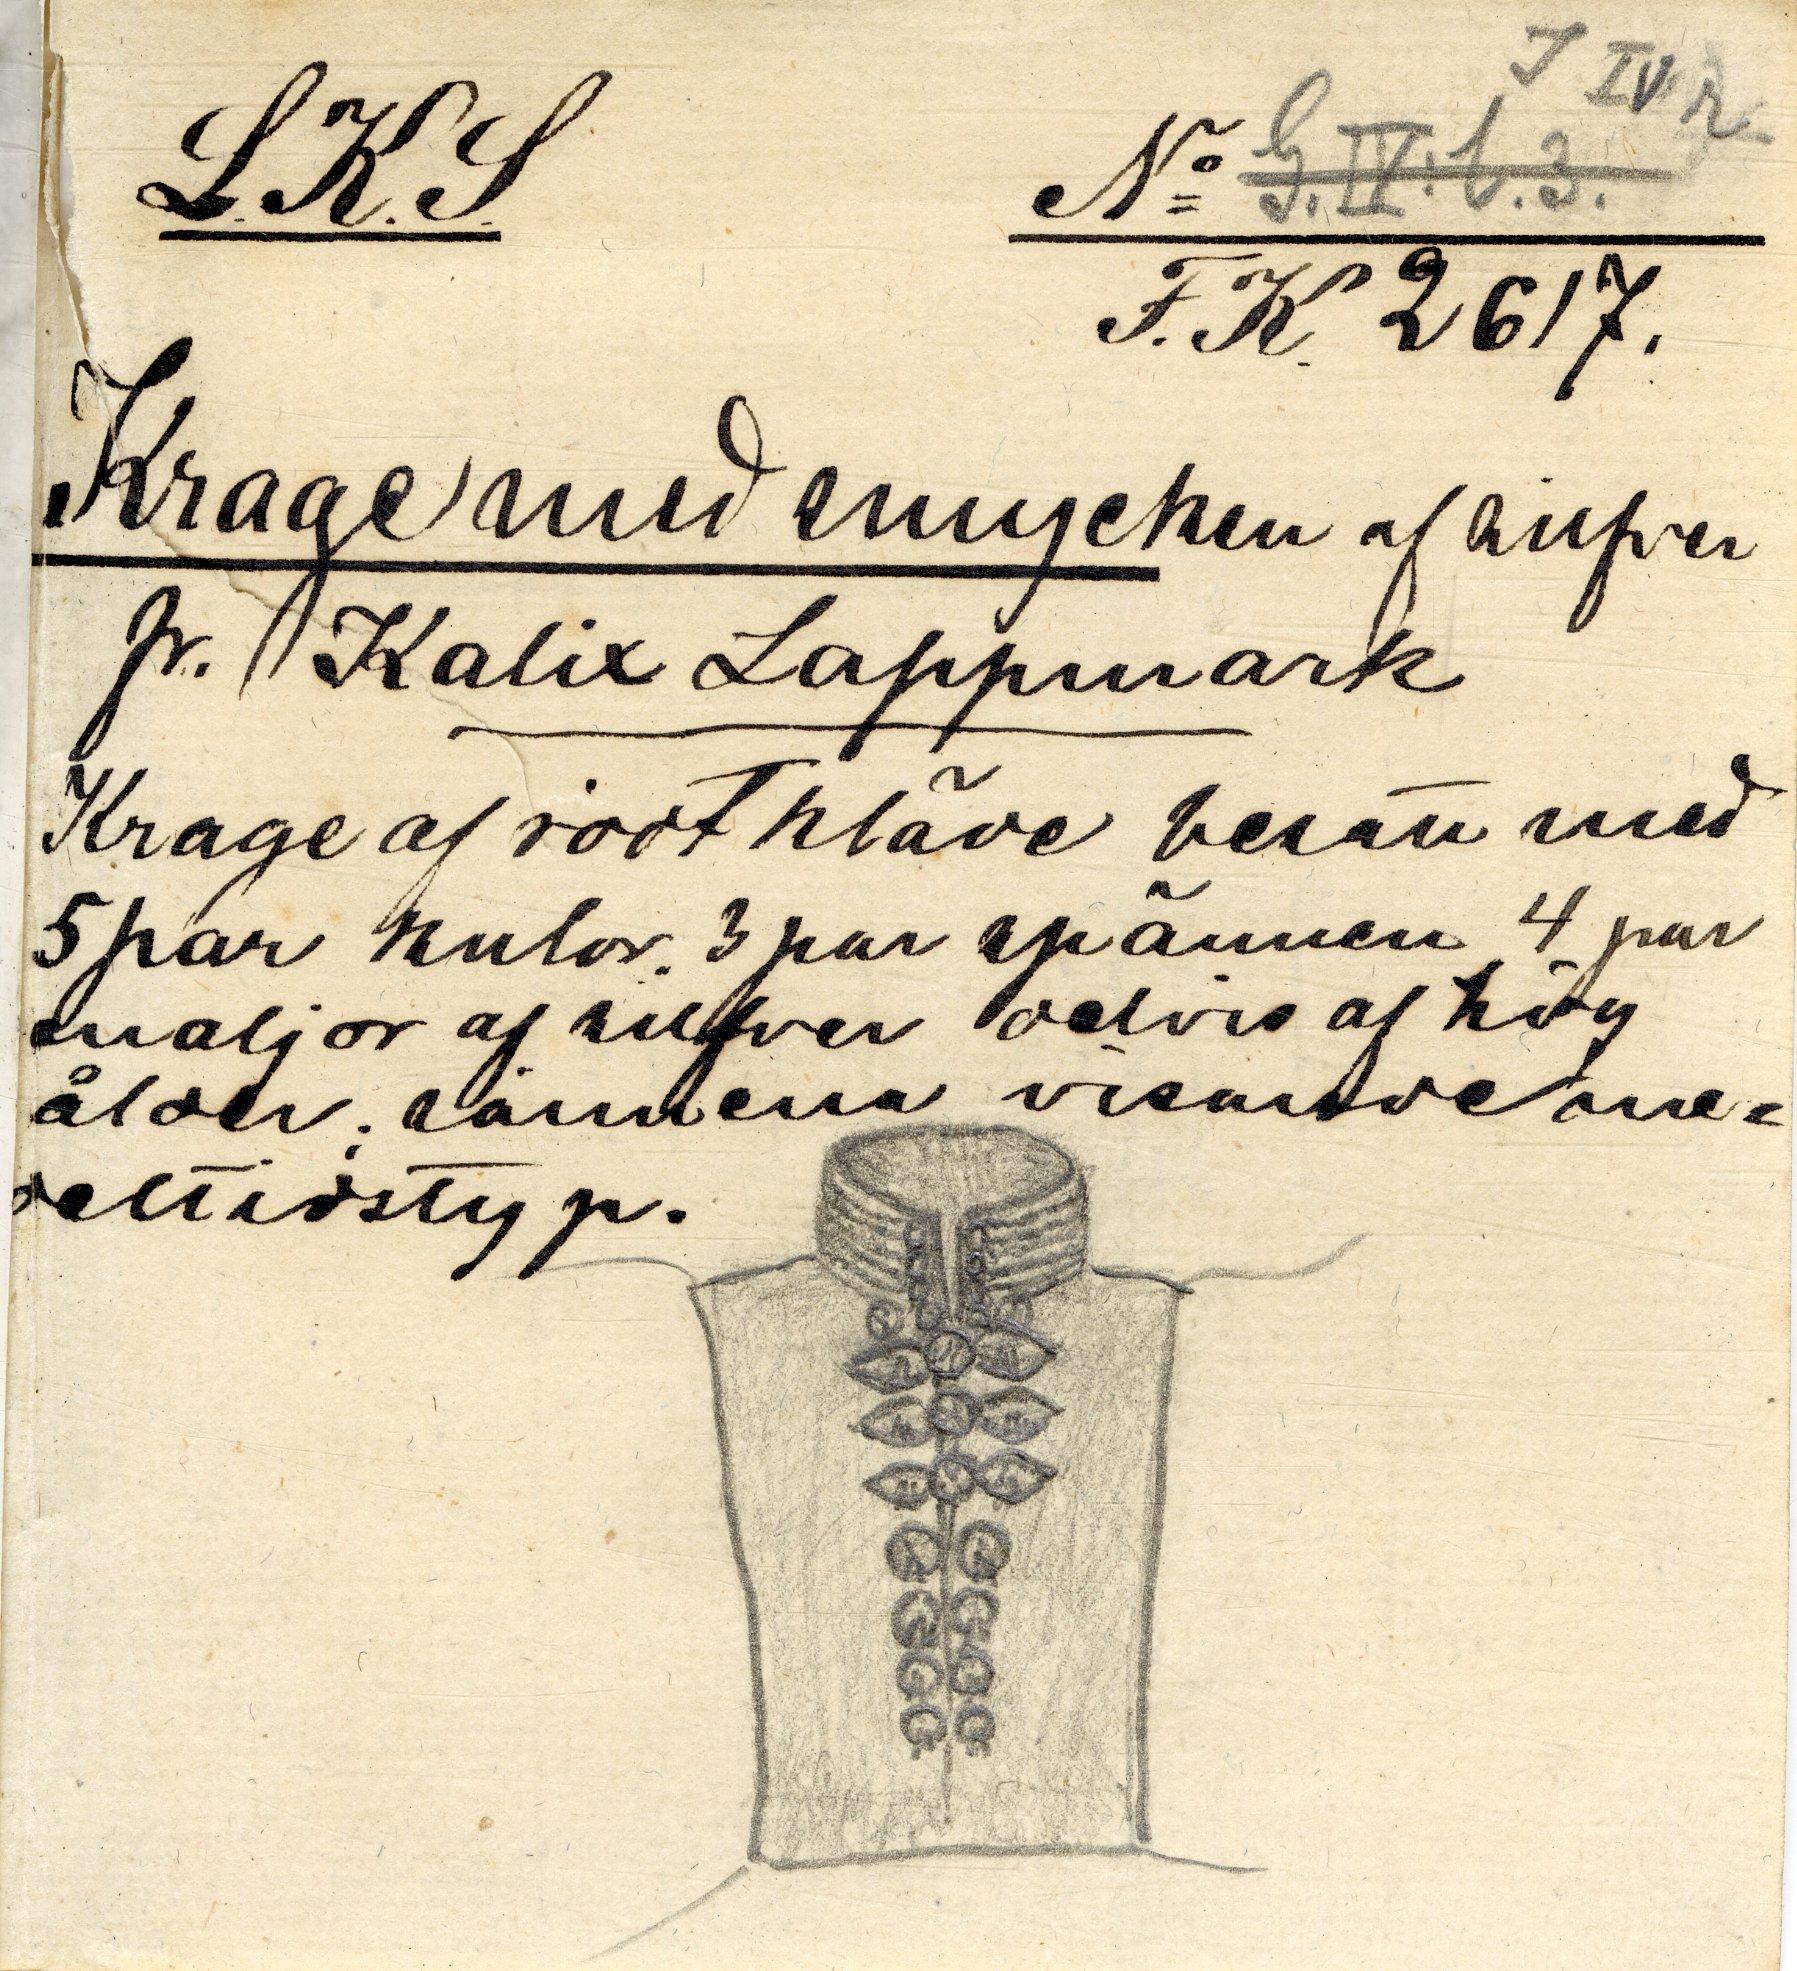 L.K.S.
J IV r
No G.IV.b.3.
F.K. 2617.
Krage med smycken af silfver
fr. Kalix Lappmark
Krage af rödt kläde besatt med
5 par kulor. 3 par spännen 4 par
maljor af silfver delvis af hög
ålder; spännena visande me=
deltidstyp.